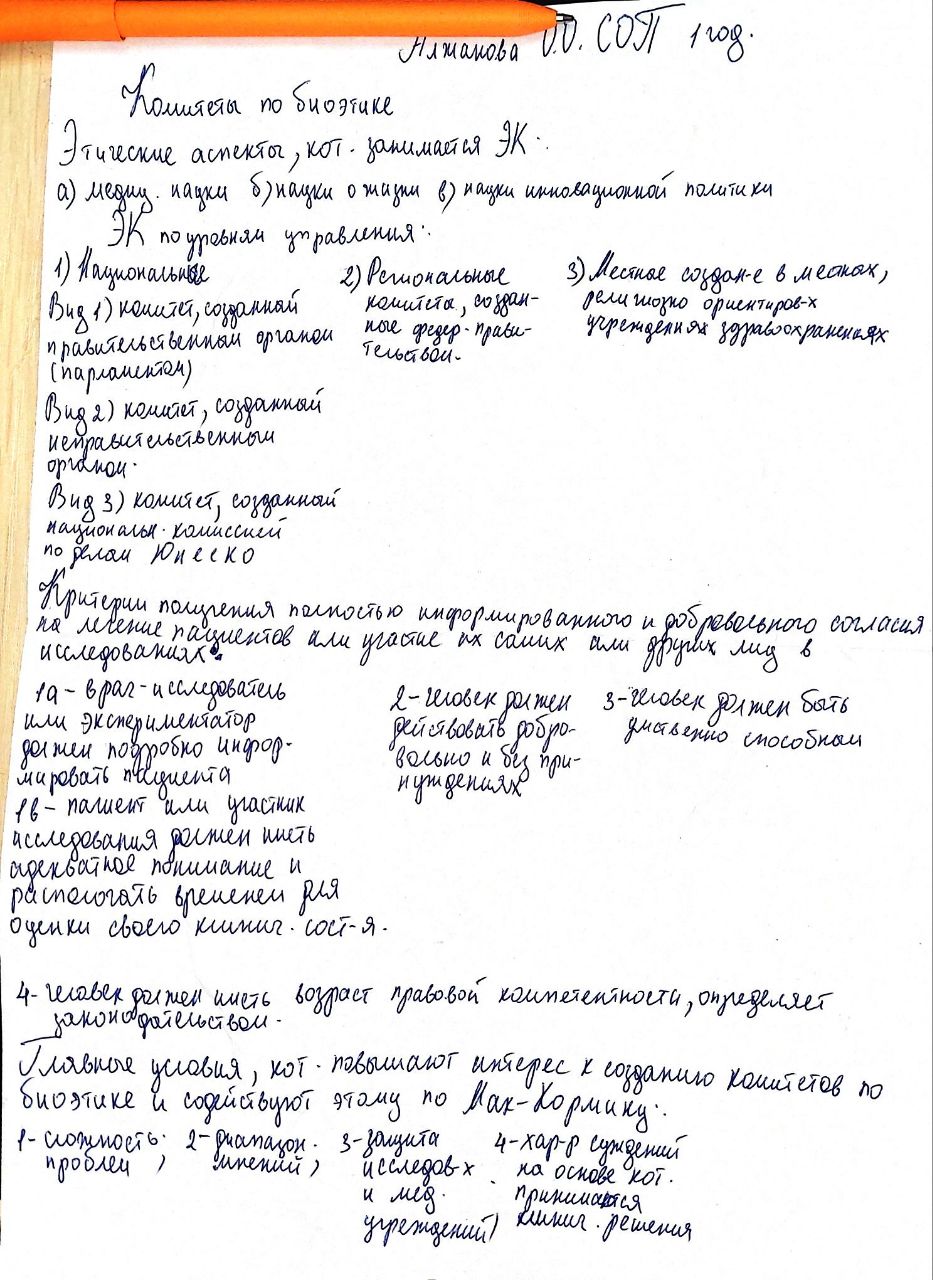 Алжанова О.О. СОП 1 год.
Комитеты по биоэтике
Этические аспекты, кот. занимается ЭК:
а) медиц. науки б) науки о жизни в) науки инновационной политики
ЭК по уровням управления:
1) Национальные
Вид 1) комитет, созданный
правительственным органом
(парламентом)
Вид 2) комитет, созданный
неправительственным
органом.
Вид 3) комитет, созданный
национальн. комиссией
по делам Юнеско
2) Региональные
комитета, создан-
ные федер. прави-
тельством.
3) Местное создан-е в местных,
религиозно ориентиров-х
учреждениях здравоохранениях
Критерии получения полностью информированного и добровольного согласия
на лечение пациентов или участие их самих или других лиц в
исследованиях.
1а - врач-исследователь
или экспериментатор
должен подробно инфор-
мировать пациента
1в - пациент или участник
исследования должен иметь
адекватное понимание и
распологать временем для
оценки своего клинич. сост-я.
2 - человек должен
действовать добро-
вольно и без при-
нуждениях
3 - человек должен быть
умственно способным
4 - человек должен иметь возраст правовой компетентности, определяет
законодательством.
Главные условия, кот. повышают интерес к созданию комитетов по
биоэтике и содействуют этому по Мак-Кормику:
1 - сложность
проблем,
2 - диапазон
мнений,
3 - защита
исследов-х
и мед.
учреждений)
4 - хар-р суждений
на основе кот.
принимаются
клинич. решения